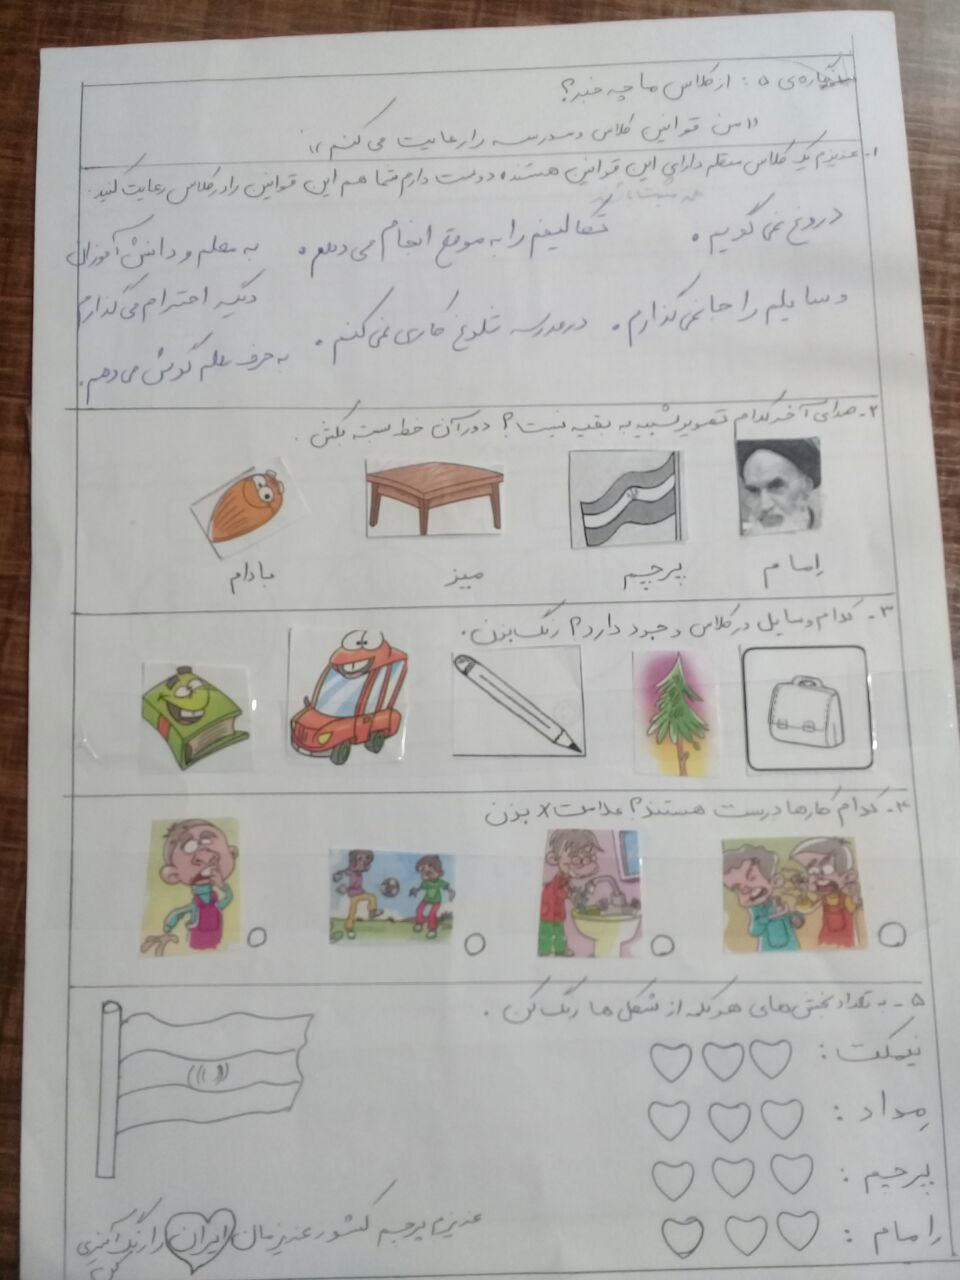 نگاره‌ی ۵: از کلاس ما چه خبر؟
«من قوانین کلاس و مدرسه را رعایت می‌کنم»
۱- عزیزم یک کلاس منظم دارای این قوانین هستند دوست دارم شما هم این قوانین را در کلاس رعایت کنید.
دروغ نمی‌گوییم. تکالیفم را به موقع انجام می‌دهم. به معلم و دانش آموزان
دیگه احترام می‌گذارم
وسایلم را جا نمی‌گذارم. در مدرسه شلوغ کاری نمی‌کنم. به حرف معلم گوش می‌دهم.
۲- صدای آخر کدام تصویر شبیه به بقیه نیست؟ دور آن خط بسته بکش.
اِمام پرچم میز بادام
۳- کدام وسایل در کلاس وجود دارد؟ رنگ بزن.
۴- کدام کارها درست هستند؟ علامت x بزن
۵- به تعداد بخش‌های هر کلمه از شکل‌ها رنگ کن.
نیمکت:
مِداد:
پرچم:
اِمام:
عزیزم پرچم کشور عزیزمان ایران را رنگ آمیزی
کن